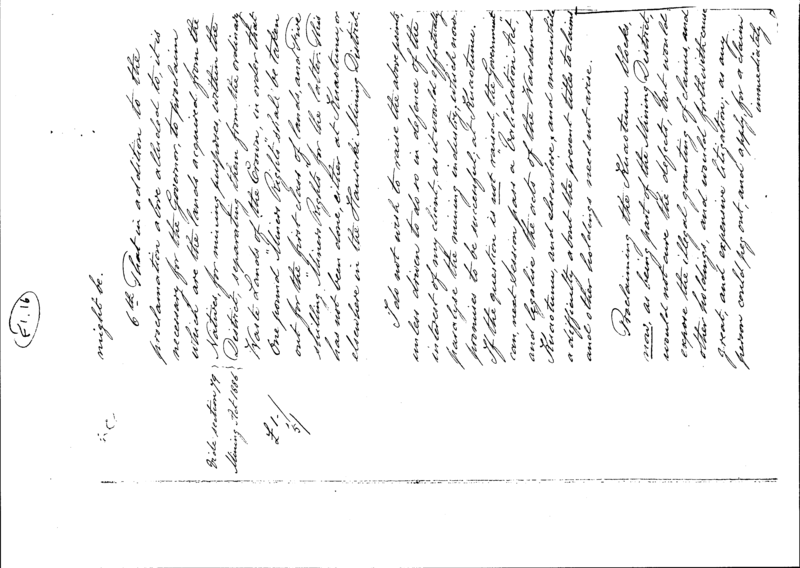 E1.16
might be.
6th That in addition to the
proclamation above alluded to, it is
necessary for the Governor, to proclaim
what are the lands acquired from the
Vide section 79 } Natives, for mining purposes, within the
Mining Act 1886 } District, separating them from the ordinary
Waste Lands of the Crown, in order that
£1./ One pound Miners Rights shall be taken
out for the first class of lands and Five
5/ shilling Miners Rights for the latter. This
has not been done, either at Kuaotunu, or
elsewhere in the Hauraki Mining District.
I do not wish to raise the above points,
unless driven to do so in defence of the
interest of my client, as it would effectually
paralyse the mining industry, which now
promises to be successful, at Kuaotunu.
If the question is not raised, the Government
can, next session, pass a "Validation Act"
and legalise the acts of the Warden at
Kuaotunu, and elsewhere, and meanwhile
a difficulty about the present titles to claims
and other holdings need not arise.
Proclaiming the Kuaotunu blocks,
now as being part of the Mining District,
would not cure the defects, but would
expose the illegal granting of claims and
other holdings, and would forthwith cause
great, and expensive litigation, as any
person could peg out, and apply for a claim
immediately